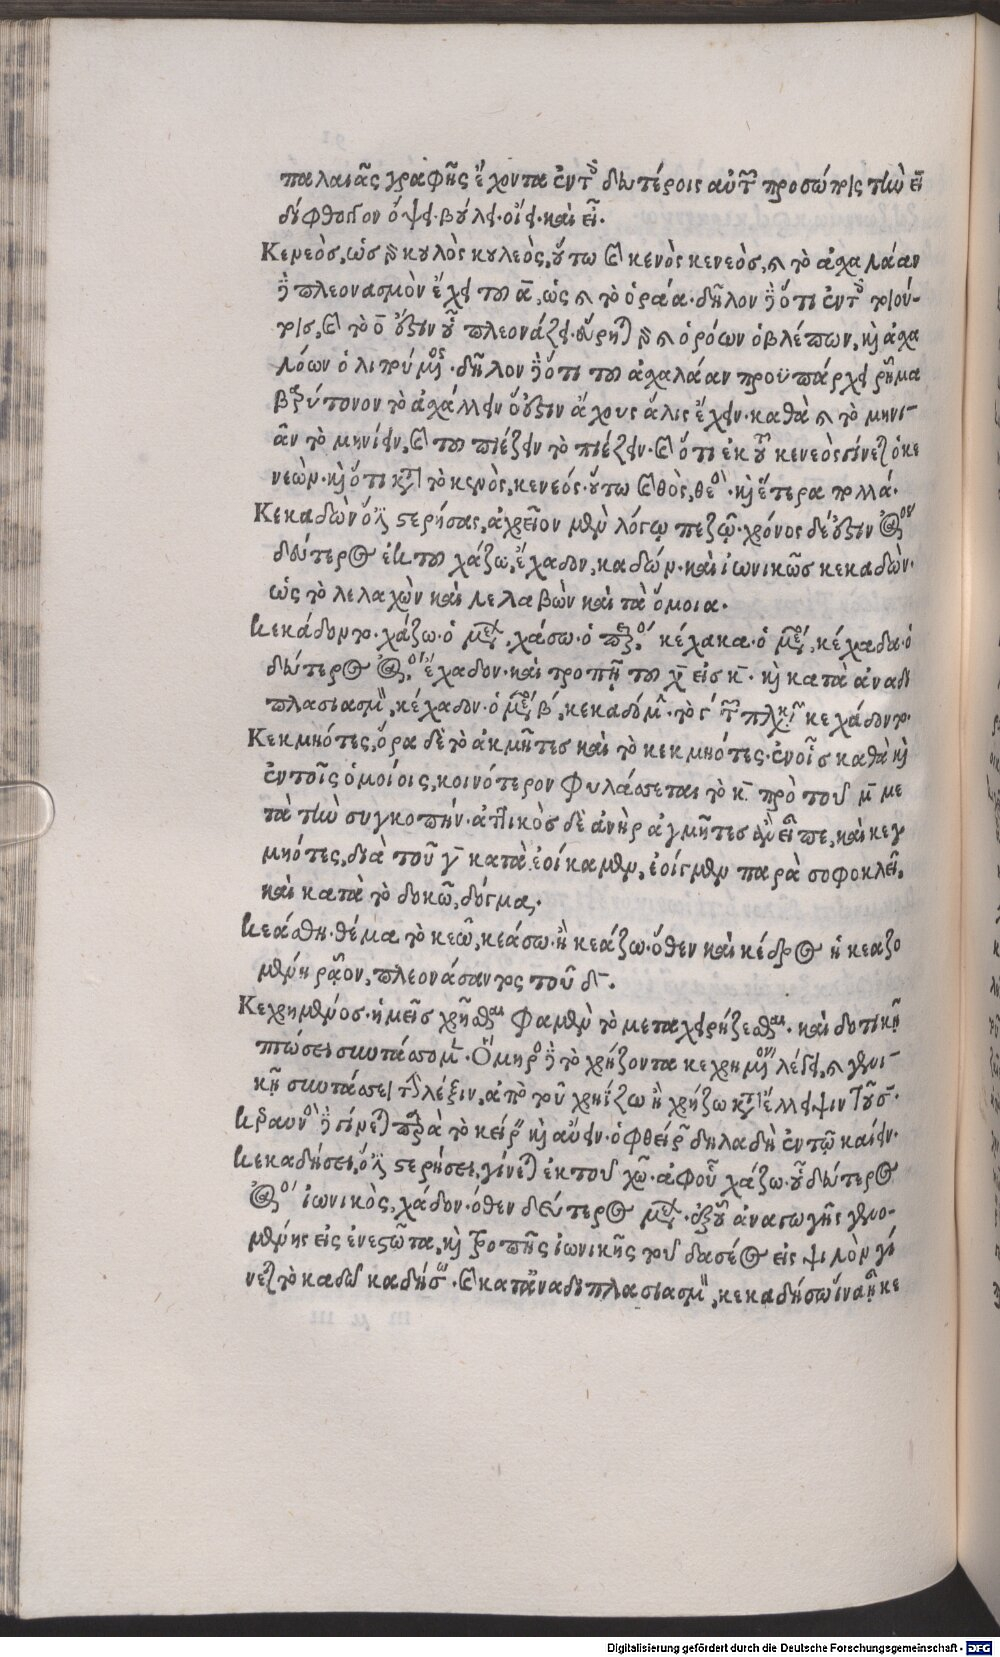 παλαιᾶς γραφῆς ἔχοντα ἐν τοῖς δευτέροις αὐτῶν προσώποις τὴν ει
δίφθογγον ὄψει. βούλει. οἴει. καὶ εἶ.
Κενεὸς, ὡς κυλὸς κυλεὸς, οὕτω καὶ κενὸς κενεὸς, καὶ τὸ ἀχαλάαν
πλεονασμὸν ἔχει τοῦ α, ὡς καὶ τὸ ὁράα. δῆλον ὅτι ἐν τοῖς τοιού-
τοις, καὶ τὸ ο οὖσιν πλεονάζει. εὕρηται καὶ ὁρόων ὁ βλέπων, καὶ ἀχα
λόων ὁ λιτρύμενος. δῆλον ὅτι τοῦ ἀχαλάαν προϋπάρχει ῥῆμα
βαρύτονον τὸ ἀχάλλειν ὅ ἐστιν ἄχους ἅλις ἔχειν. καθὰ καὶ τὸ μηνι-
ᾶν τὸ μηνίειν, καὶ τοῦ πιέζειν τὸ πιέζειν. καὶ ὅτι ἐκ τοῦ κενεὸς γίνεται ὁ κε
νεών. καὶ ὅτι κατὰ τὸ κενὸς, κενεός. οὕτω καὶ θὸς, θεός. καὶ ἕτερα πολλά.
Κεκαδὼν ὅ ἐστι στερήσας, ἀχρεῖον μὲν λόγῳ πεζῷ. χρόνος δέ ἐστιν ἀόριστος
δεύτερος ἐκ τοῦ χάζω, ἔχαδον, καδών. καὶ ἰωνικῶς κεκαδών.
ὡς τὸ λελαχὼν καὶ λελαβὼν καὶ τὰ ὅμοια.
Κεκάδοντο. χάζω. ὁ μέλλων, χάσω. ὁ παρακείμενος κέχακα. ὁ μέσος, κέχαδα. ὁ
δεύτερος ἀόριστος, ἔχαδον. καὶ τροπῇ τοῦ χ εἰς κ. καὶ κατὰ ἀναδι
πλασιασμὸν, κέχαδον. ὁ μέσος β, κεκαδόμην. τὸ γ τῶν πληθυντικῶν κεχάδοντο.
Κεκμηότες, ὅρα δὲ τὸ ἀκμῆτες καὶ τὸ κεκμηότες. ἐν οἷς καθὰ καὶ
ἐν τοῖς ὁμοίοις, κοινότερον φυλάσσεται τὸ κ πρὸ τοῦ μ με
τὰ τὴν συγκοπήν. ἀττικὸς δὲ ἀνὴρ ἀγμῆτες ἂν εἶπε, καὶ κεγ
μηότες, διὰ τοῦ γ κατὰ ἐοίκαμεν, ἐοίγμεν παρὰ σοφοκλεῖ.
καὶ κατὰ τὸ δοκῶ, δόγμα.
Κεάσθη. θέμα τὸ κεῶ, κεάσω. ἢ κεάζω. ὅθεν καὶ κέδρος ἡ κεαζο
μένη ῥᾷον, πλεονάσαντος τοῦ δ.
Κεχρημένος. ἡμεῖς χρῆσθαι φαμὲν τὸ μεταχειρίζεσθαι. καὶ δοτικῇ
πτώσει συντάσσομεν. Ὅμηρος τὸ χρήζοντα κεχρημένον λέγει, καὶ γενι-
κῇ συντάσσει τὴν λέξιν, ἀπὸ τοῦ χρηΐζω ἢ χρήζω κατὰ ἔλλειψιν
Κεραυνὸς γίνεται παρὰ τὸ κείρειν καὶ αὔειν. ὁ φθείρων δηλαδὴ ἐν τῷ καίειν.
Κεκαδήσει, ὅ ἐστι στερήσει, γίνεται ἐκ τοῦ χῶ. ἀφ οὗ χάζω. οὗ δεύτερος
ἀόριστος ἰωνικὸς, χάδον. ὅθεν δεύτερος μέλλων. ἐξ οὗ ἀναγωγῆς γενο-
μένης εἰς ἐνεστῶτα, καὶ τροπῆς ἰωνικῆς τοῦ δασέος εἰς ψιλὸν γί
νεται τὸ καδῶ καδήσω. καὶ κατὰ ἀναδιπλασιασμὸν, κεκαδήσω ἵνα ᾖ κε
Digitalisierung gefördert durch die Deutsche Forschungsgemeinschaft - DFG